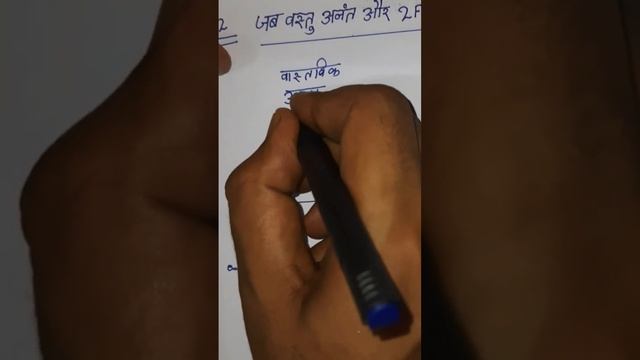 2 जब वस्तु अनंत और 2F
वास्तविक